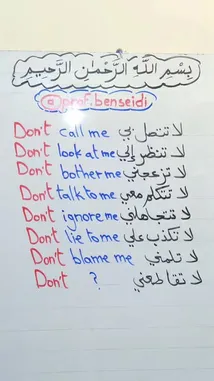 بِسْمِ اللَّهِ الرَّحْمَٰنِ الرَّحِيمِ
@prof.benseidi
Don't call me لا تتصل بي
Don't look at me لا تنظر إلي
Don't bother me لا تزعجني
Don't talk to me لا تتكلم معي
Don't ignore me لا تتجاهلني
Don't lie to me لا تكذب علي
Don't blame me لا تلمني
Don't ? لا تقاطعني